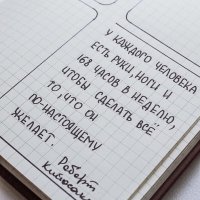 У КАЖДОГО ЧЕЛОВЕКА
ЕСТЬ РУКИ, НОГИ И
168 ЧАСОВ В НЕДЕЛЮ,
ЧТОБЫ СДЕЛАТЬ ВСЁ
ТО, ЧТО ОН
ПО-НАСТОЯЩЕМУ
ЖЕЛАЕТ.
Роберт
Кийосаки